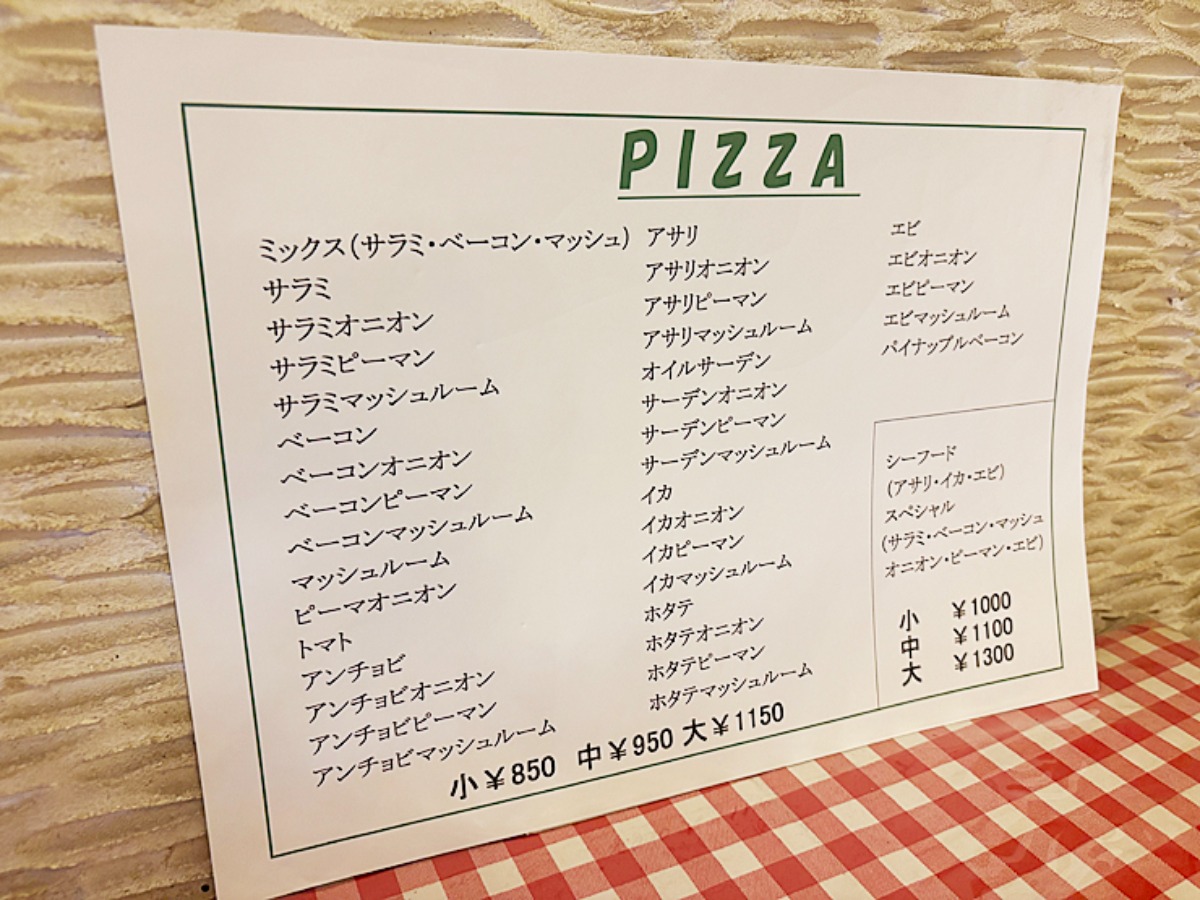 PIZZA
ミックス(サラミ・ベーコン・マッシュ)
サラミ
サラミオニオン
サラミピーマン
サラミマッシュルーム
ベーコン
ベーコンオニオン
ベーコンピーマン
ベーコンマッシュルーム
マッシュルーム
ピーマオニオン
トマト
アンチョビ
アンチョビオニオン
アンチョビピーマン
アンチョビマッシュルーム
アサリ
アサリオニオン
アサリピーマン
アサリマッシュルーム
オイルサーデン
サーデンオニオン
サーデンピーマン
サーデンマッシュルーム
イカ
イカオニオン
イカピーマン
イカマッシュルーム
ホタテ
ホタテオニオン
ホタテピーマン
ホタテマッシュルーム
エビ
エビオニオン
エビピーマン
エビマッシュルーム
パイナップルベーコン
小¥850 中¥950 大¥1150
シーフード
(アサリ・イカ・エビ)
スペシャル
(サラミ・ベーコン・マッシュ
オニオン・ピーマン・エビ)
小 ¥1000
中 ¥1100
大 ¥1300